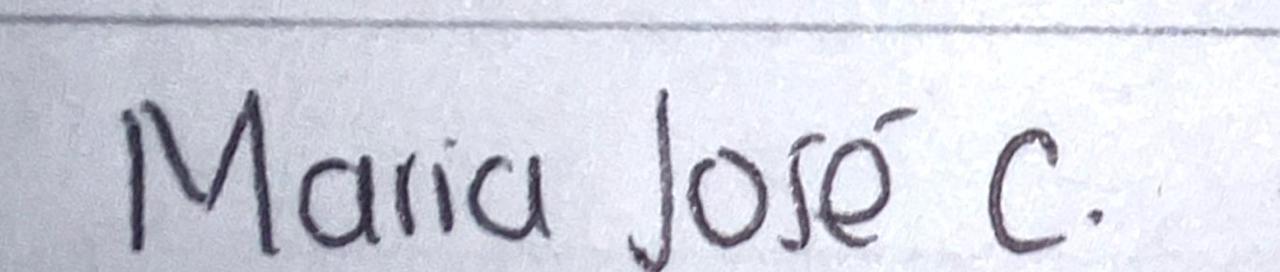 Maria José C.